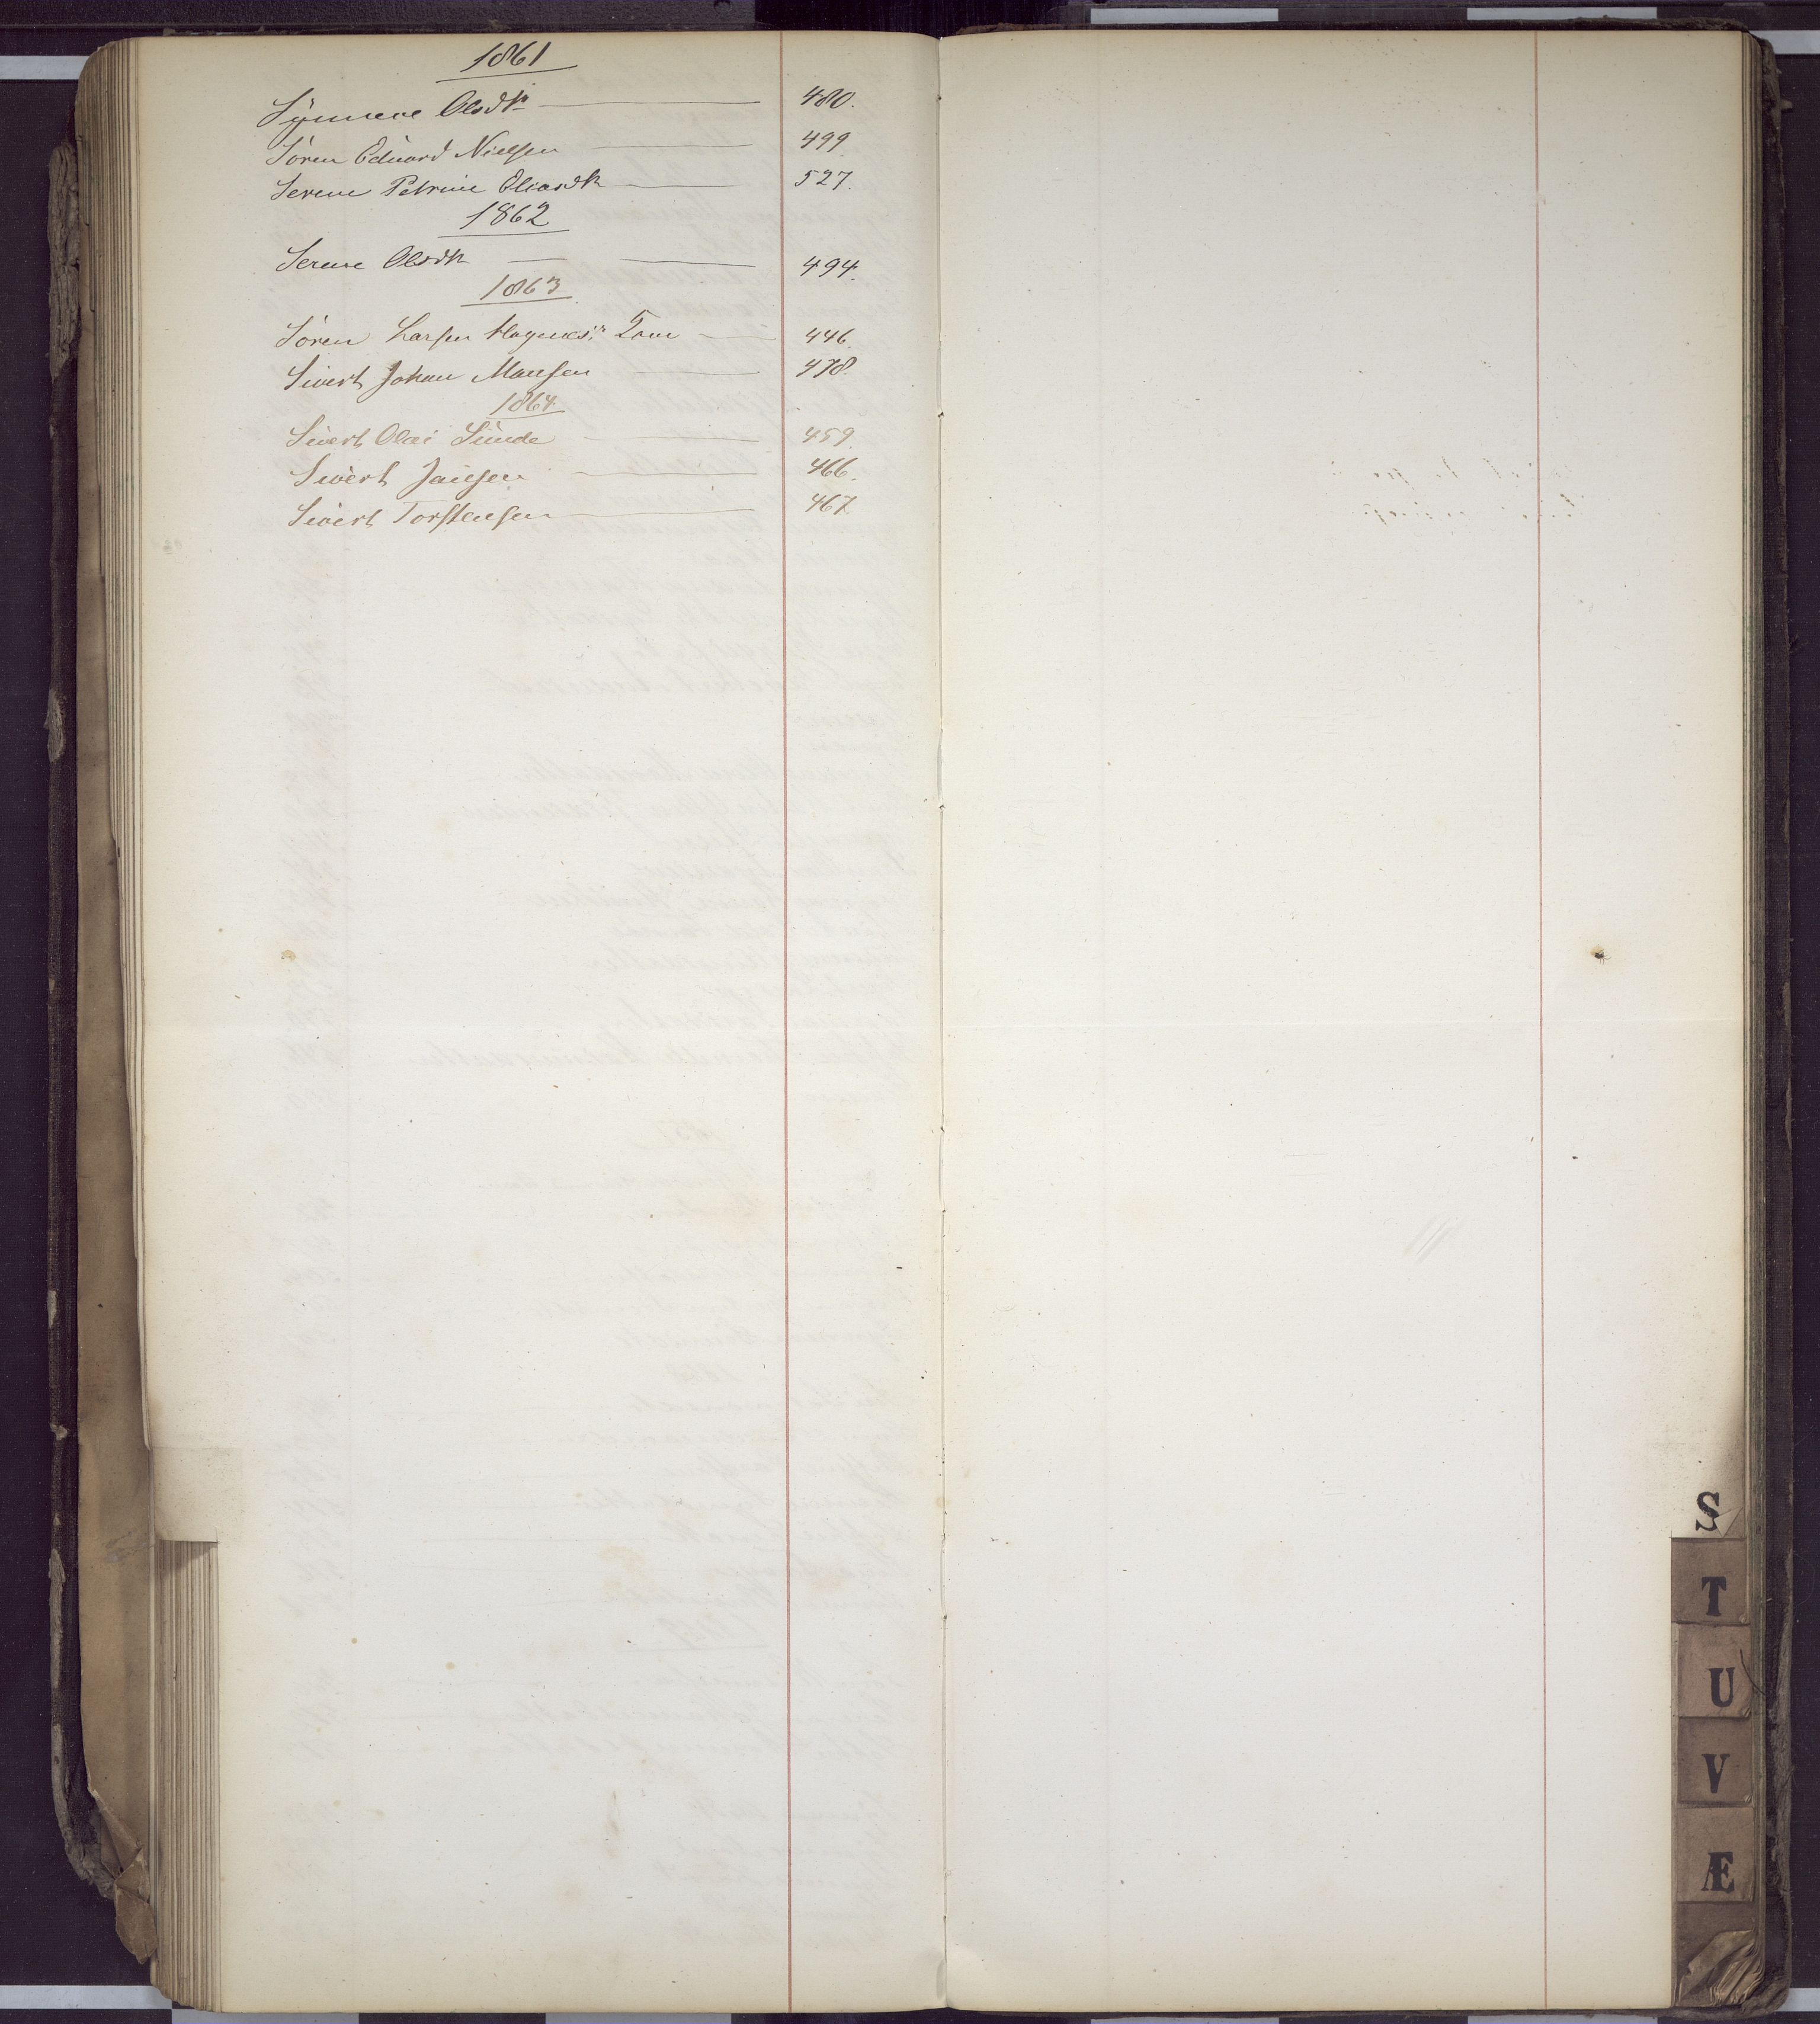 1861
Synneve Olsdtr 480.
Sören Edvard Nielsen 499
Serene Petrine Oliasdtr 527.
1862
Serene Olsdtr 494.
1863
Sören Larsen 446.
Sivert Johan Monsen 478.
1864
Sivert Olai Sunde 459.
Sivert Jansen 466.
Sivert Torstensen 467
S
T
U
V
Æ